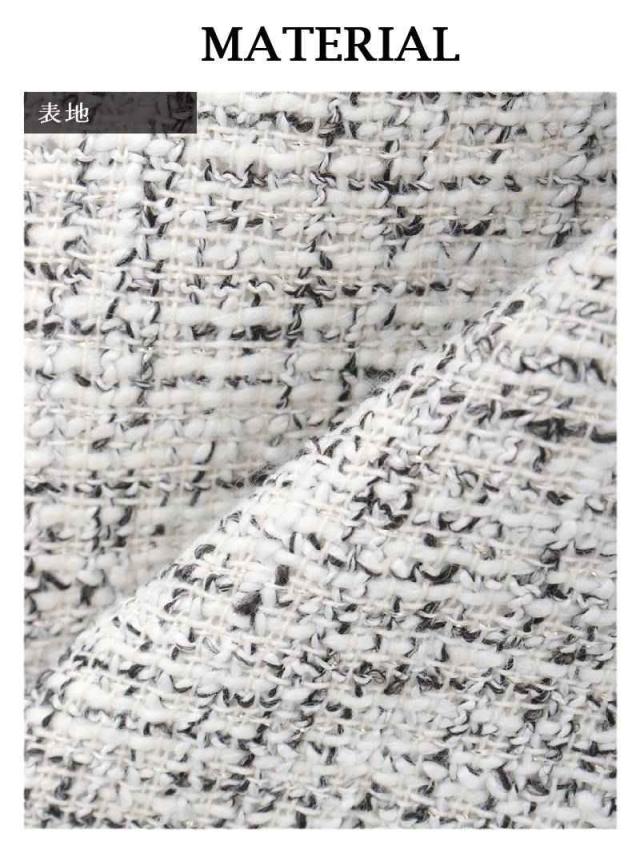 MATERIAL
表地